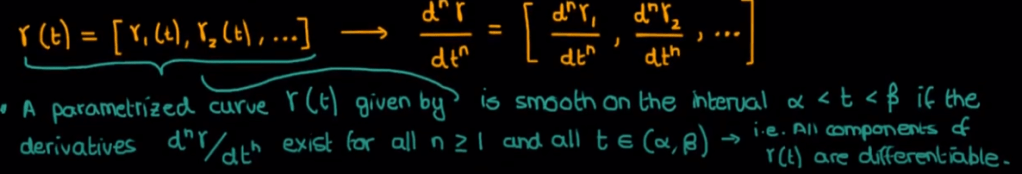 r(t) = [r₁(t), r₂(t), ...] → dⁿr/dtⁿ = [dⁿr₁/dtⁿ, dⁿr₂/dtⁿ, ...]
• A parametrized curve r(t) given by is smooth on the interval α < t < β if the
derivatives dⁿr/dtⁿ exist for all n ≥ 1 and all t ∈ (α, β) → i.e. All components of
r(t) are differentiable.